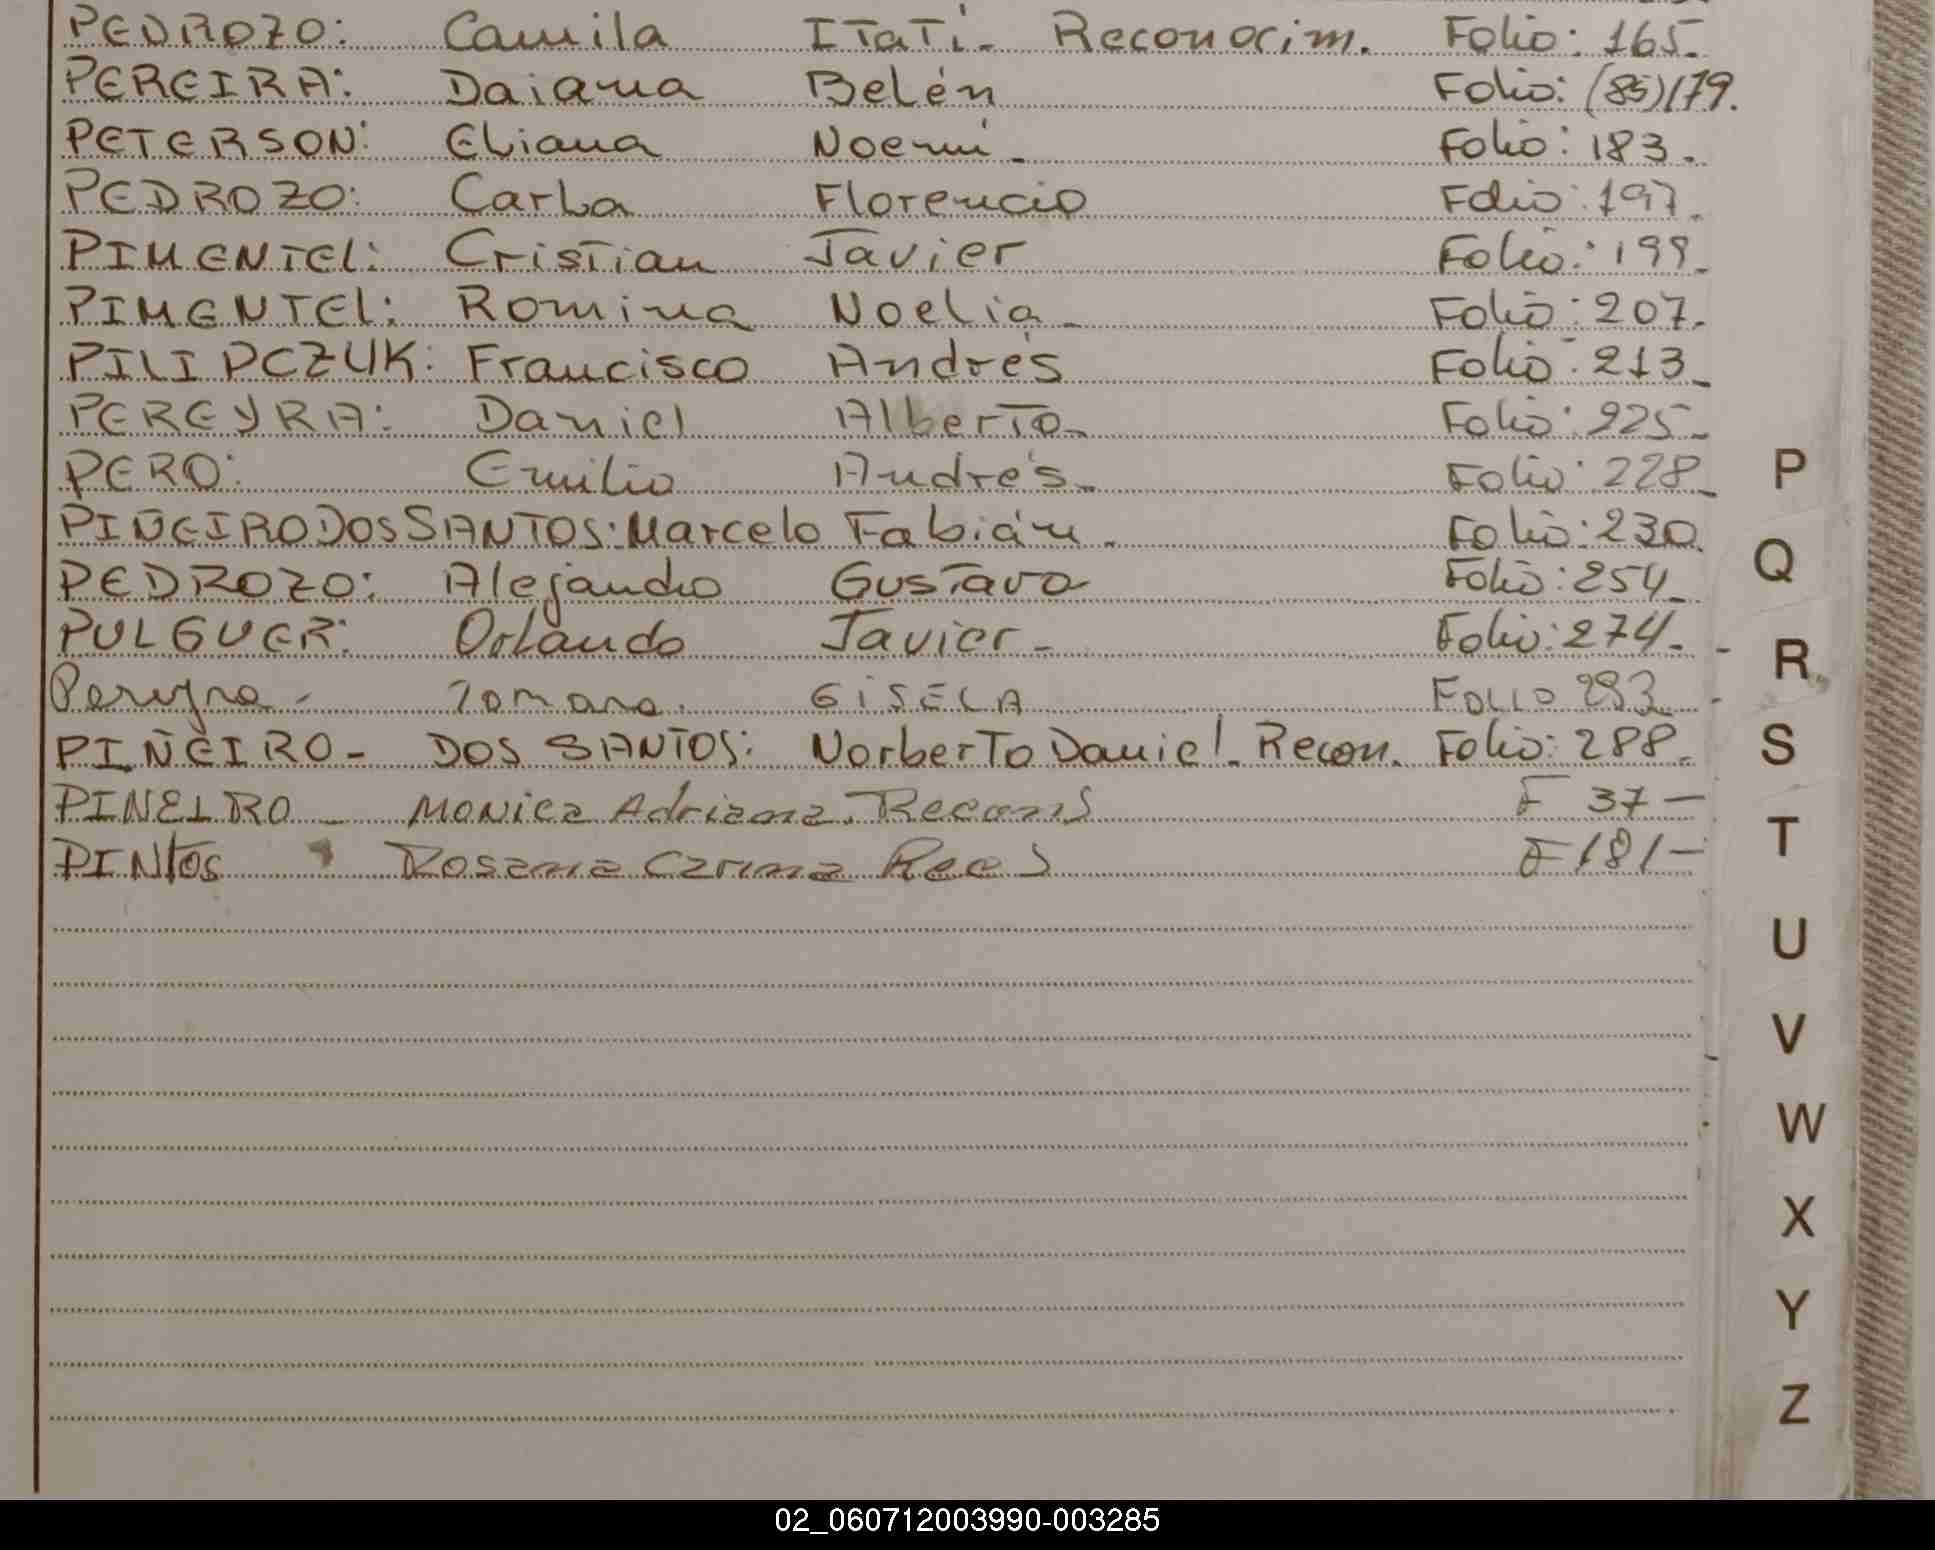 PEDROZO: Camila ITaTí. Reconocim. Folio: 165.
PEREIRA: Daiana Belén Folio: (85)179.
PETERSON: Eliana Noemí. Folio: 183.
PEDROZO: Carla Florencio Folio: 197.
PIMENTEl: Cristian Javier Folio: 199.
PIMENTEl: Romina Noelia. Folio: 207.
PILIPCZUK: Francisco Andrés Folio: 213.
PEREYRA: Daniel Alberto. Folio: 225.
PERO: Emilio Andrés. Folio: 228.
PIÑEIRO DOS SANTOS: Marcelo Fabián. Folio: 230.
PEDROZO: Alejandro Gustavo Folio: 254.
PULGUER: Orlando Javier. Folio: 274.
Pereyra - Tomara. GISELA FOLIO 293
PIÑEIRO - DOS SANTOS: Norberto Daniel. Recon. Folio: 288.
PINEIRO - MONica Adriana. Recons F 37 -
PINtos Rosana Carina Rec S F 181 -
P
Q
R
S
T
U
V
W
X
Y
Z
02_060712003990-003285